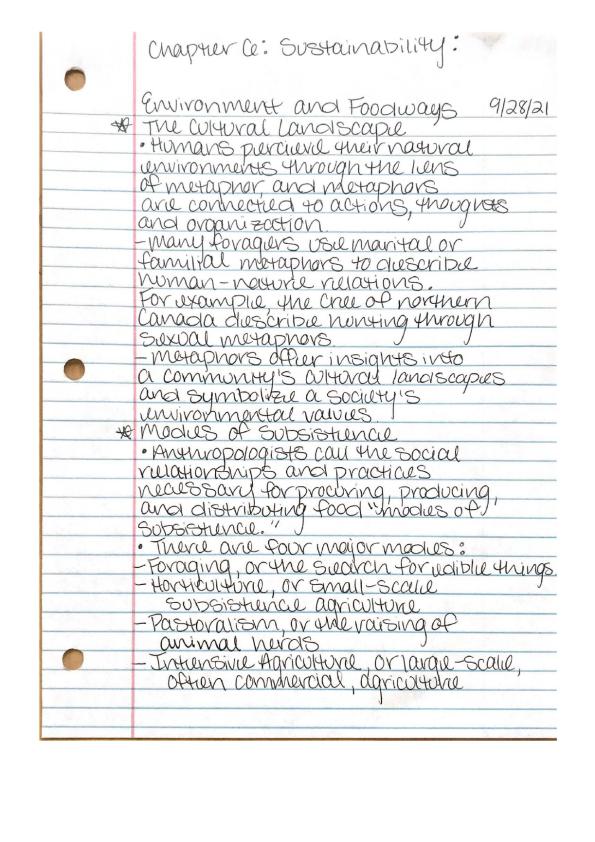 Chapter 6: Sustainability:
Environment and Foodways 9/28/21
☆ The Cultural Landscape
• Humans percieve their natural
environments through the lens
of metaphor, and metaphors
are connected to actions, thoughts
and organization.
- many foragers use marital or
familial metaphors to describe
human-nature relations.
For example, the Cree of northern
Canada describe hunting through
sexual metaphors.
- metaphors offer insights into
a community's cultural landscapes
and symbolize a society's
environmental values
☆ Modes of Subsistence
• Anthropologists call the social
relationships and practices
necessary for procuring, producing,
and distributing food "modes of
subsistence."
• There are four major modes:
- Foraging, or the search for edible things
- Horticulture, or small-scale
subsistence agriculture
- Pastoralism, or the raising of
animal herds
- Intensive Agriculture, or large-scale,
often commercial, agriculture